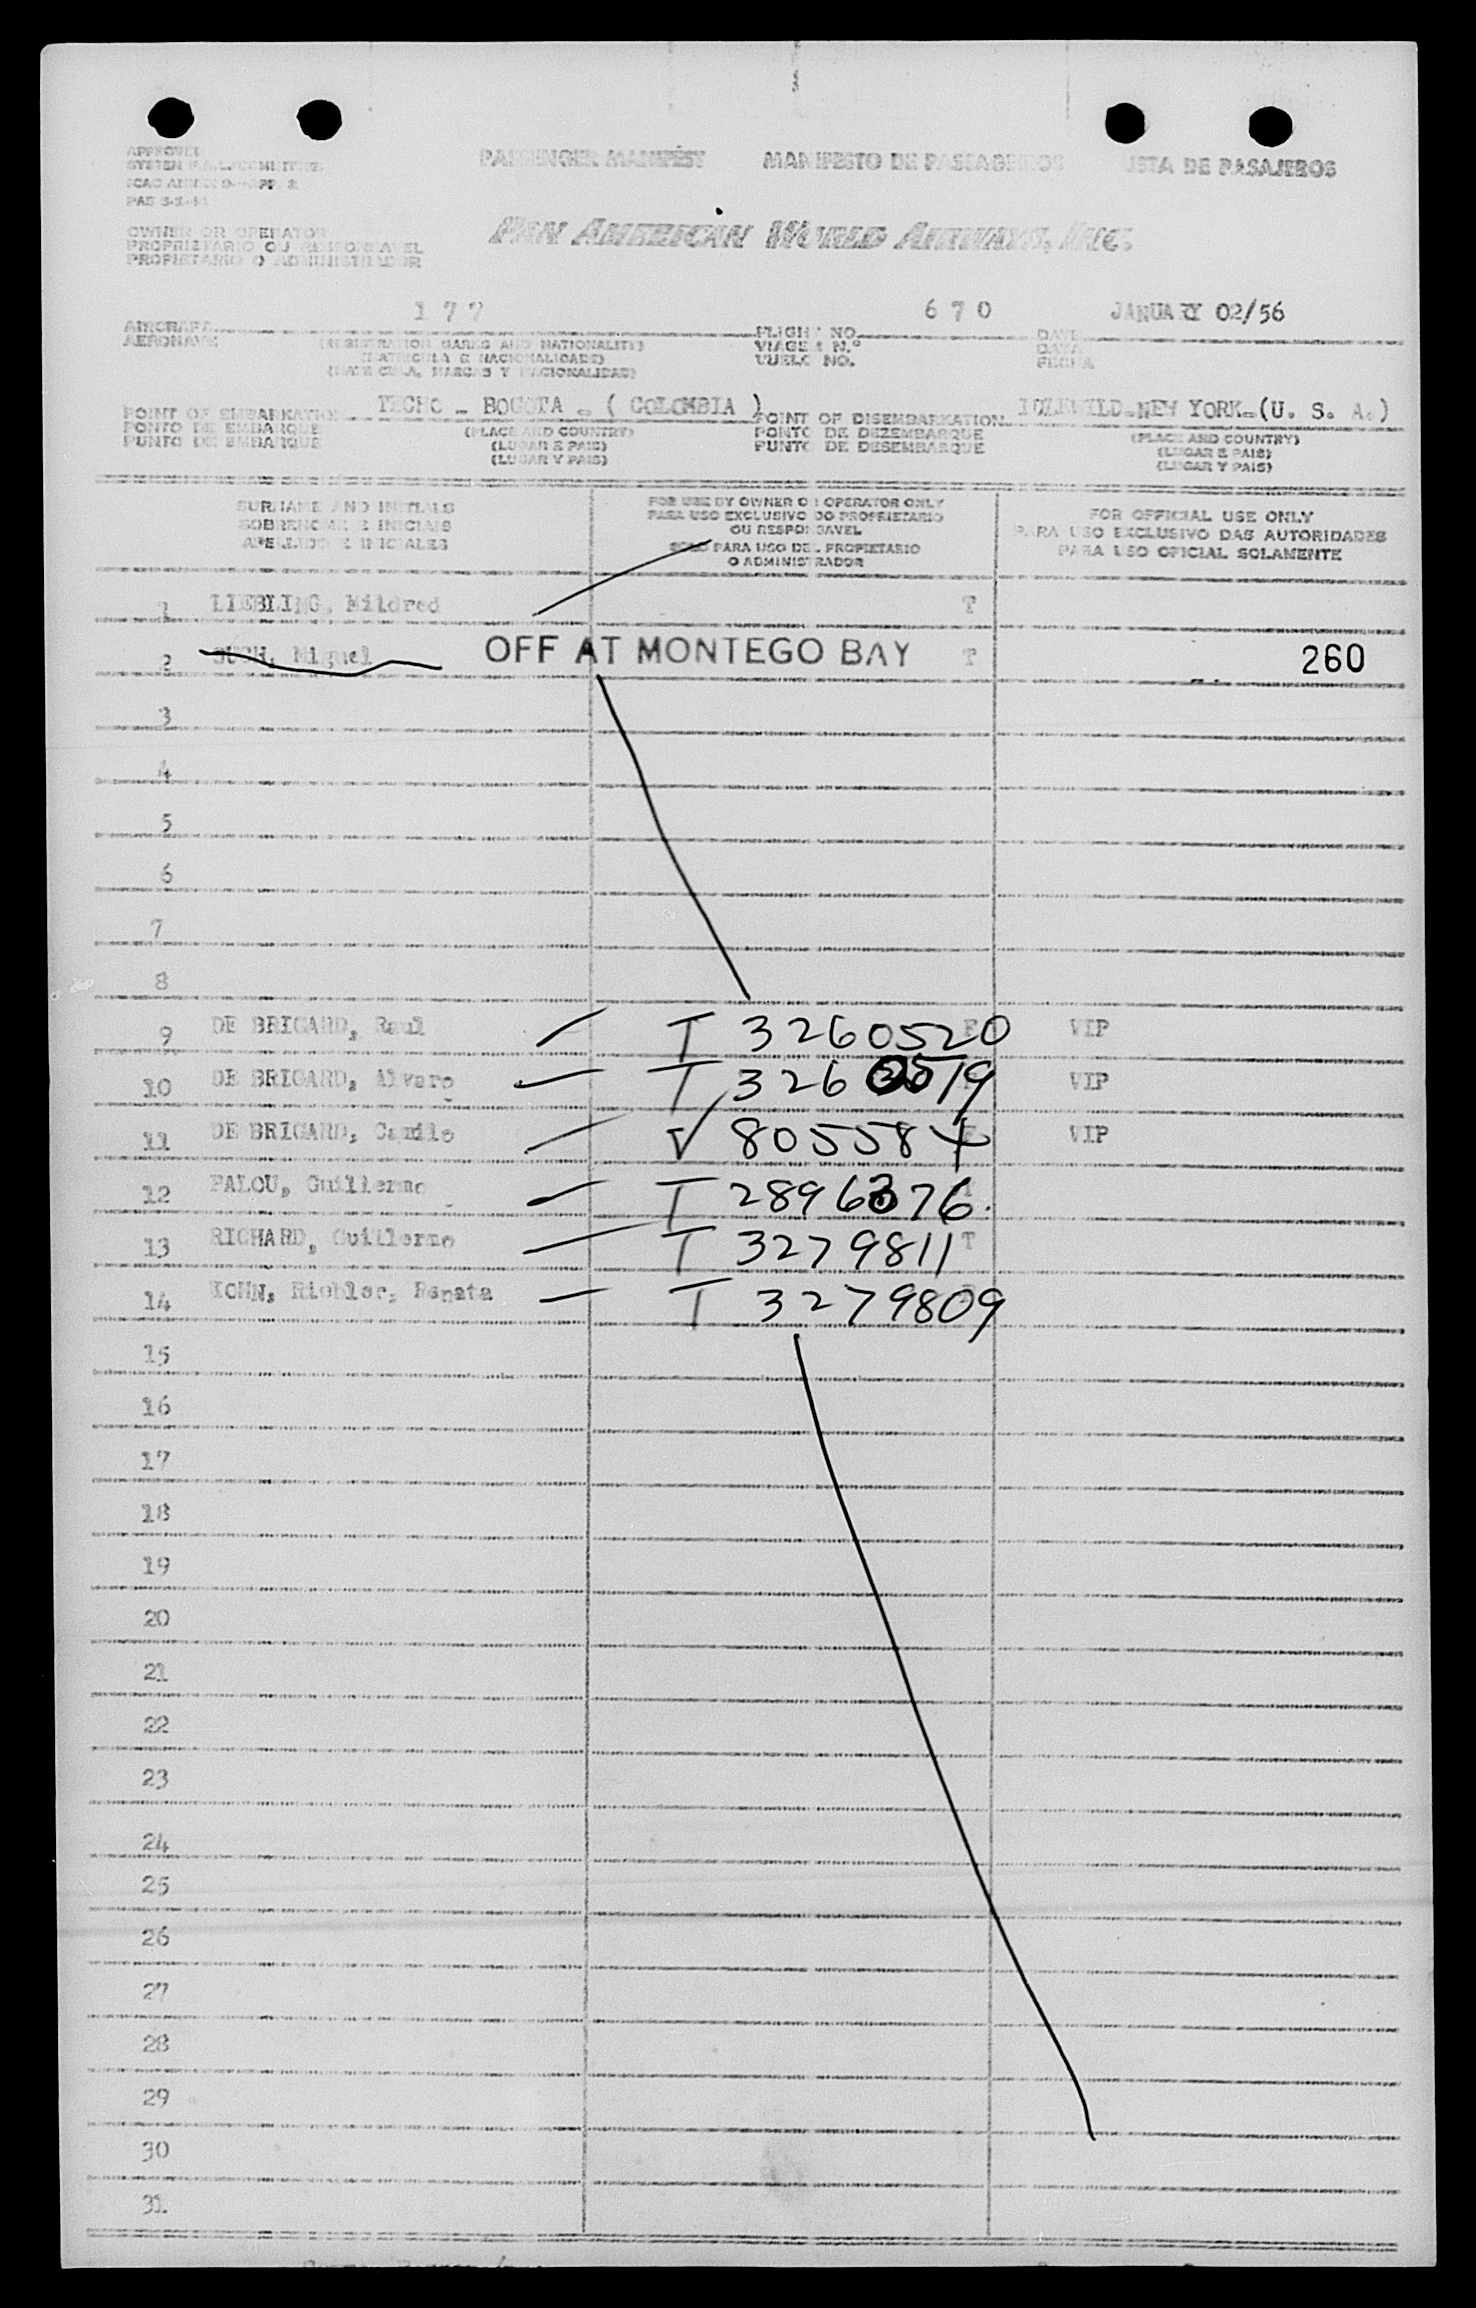 APPROVED
PASSENGER MANIFEST MANIFESTO DE PASSAGEIROS LISTA DE PASAJEROS
OWNER OR OPERATOR
PROPRIETARIO OU RESPONSAVEL
PROPIETARIO O ADMINISTRADOR
PAN AMERICAN WORLD AIRWAYS, INC.
177 670 JANUARY 02/56
AIRCRAFT FLIGHT NO. DATE
AERONAVE (REGISTRATION MARKS AND NATIONALITY) VIAGEM N.º DATA
(MATRICULA E NACIONALIDADE) VUELO NO. FECHA
(MATRICULA, MARCAS Y NACIONALIDAD)
TECHO - BOGOTA - ( COLOMBIA ) IDLEWILD-NEW YORK-(U. S. A.)
POINT OF EMBARKATION POINT OF DISEMBARKATION
PONTO DE EMBARQUE (PLACE AND COUNTRY) PONTO DE DEZEMBARQUE (PLACE AND COUNTRY)
PUNTO DE EMBARQUE (LUGAR E PAIS) PUNTO DE DESEMBARQUE (LUGAR E PAIS)
(LUGAR Y PAIS) (LUGAR Y PAIS)
SURNAME AND INITIALS FOR USE BY OWNER OR OPERATOR ONLY FOR OFFICIAL USE ONLY
SOBRENOME E INICIAIS PARA USO EXCLUSIVO DO PROPRIETARIO PARA USO EXCLUSIVO DAS AUTORIDADES
APELLIDO E INICIALES OU RESPONSAVEL PARA USO OFICIAL SOLAMENTE
SOLO PARA USO DEL PROPIETARIO
O ADMINISTRADOR
1 LIEBLING, Mildred T
2 Miguel OFF AT MONTEGO BAY T 260
3
4
5
6
7
8
9 DE BRIGARD, Raul T 3260520 VIP
10 DE BRIGARD, Alvaro T 3260519 VIP
11 DE BRIGARD, Camilo V 805584 VIP
12 PALOU, Guillermo T 2896376
13 RICHARD, Guillermo T 3279811 T
14 KOHN, Richler, Renata T 3279809
15
16
17
18
19
20
21
22
23
24
25
26
27
28
29
30
31